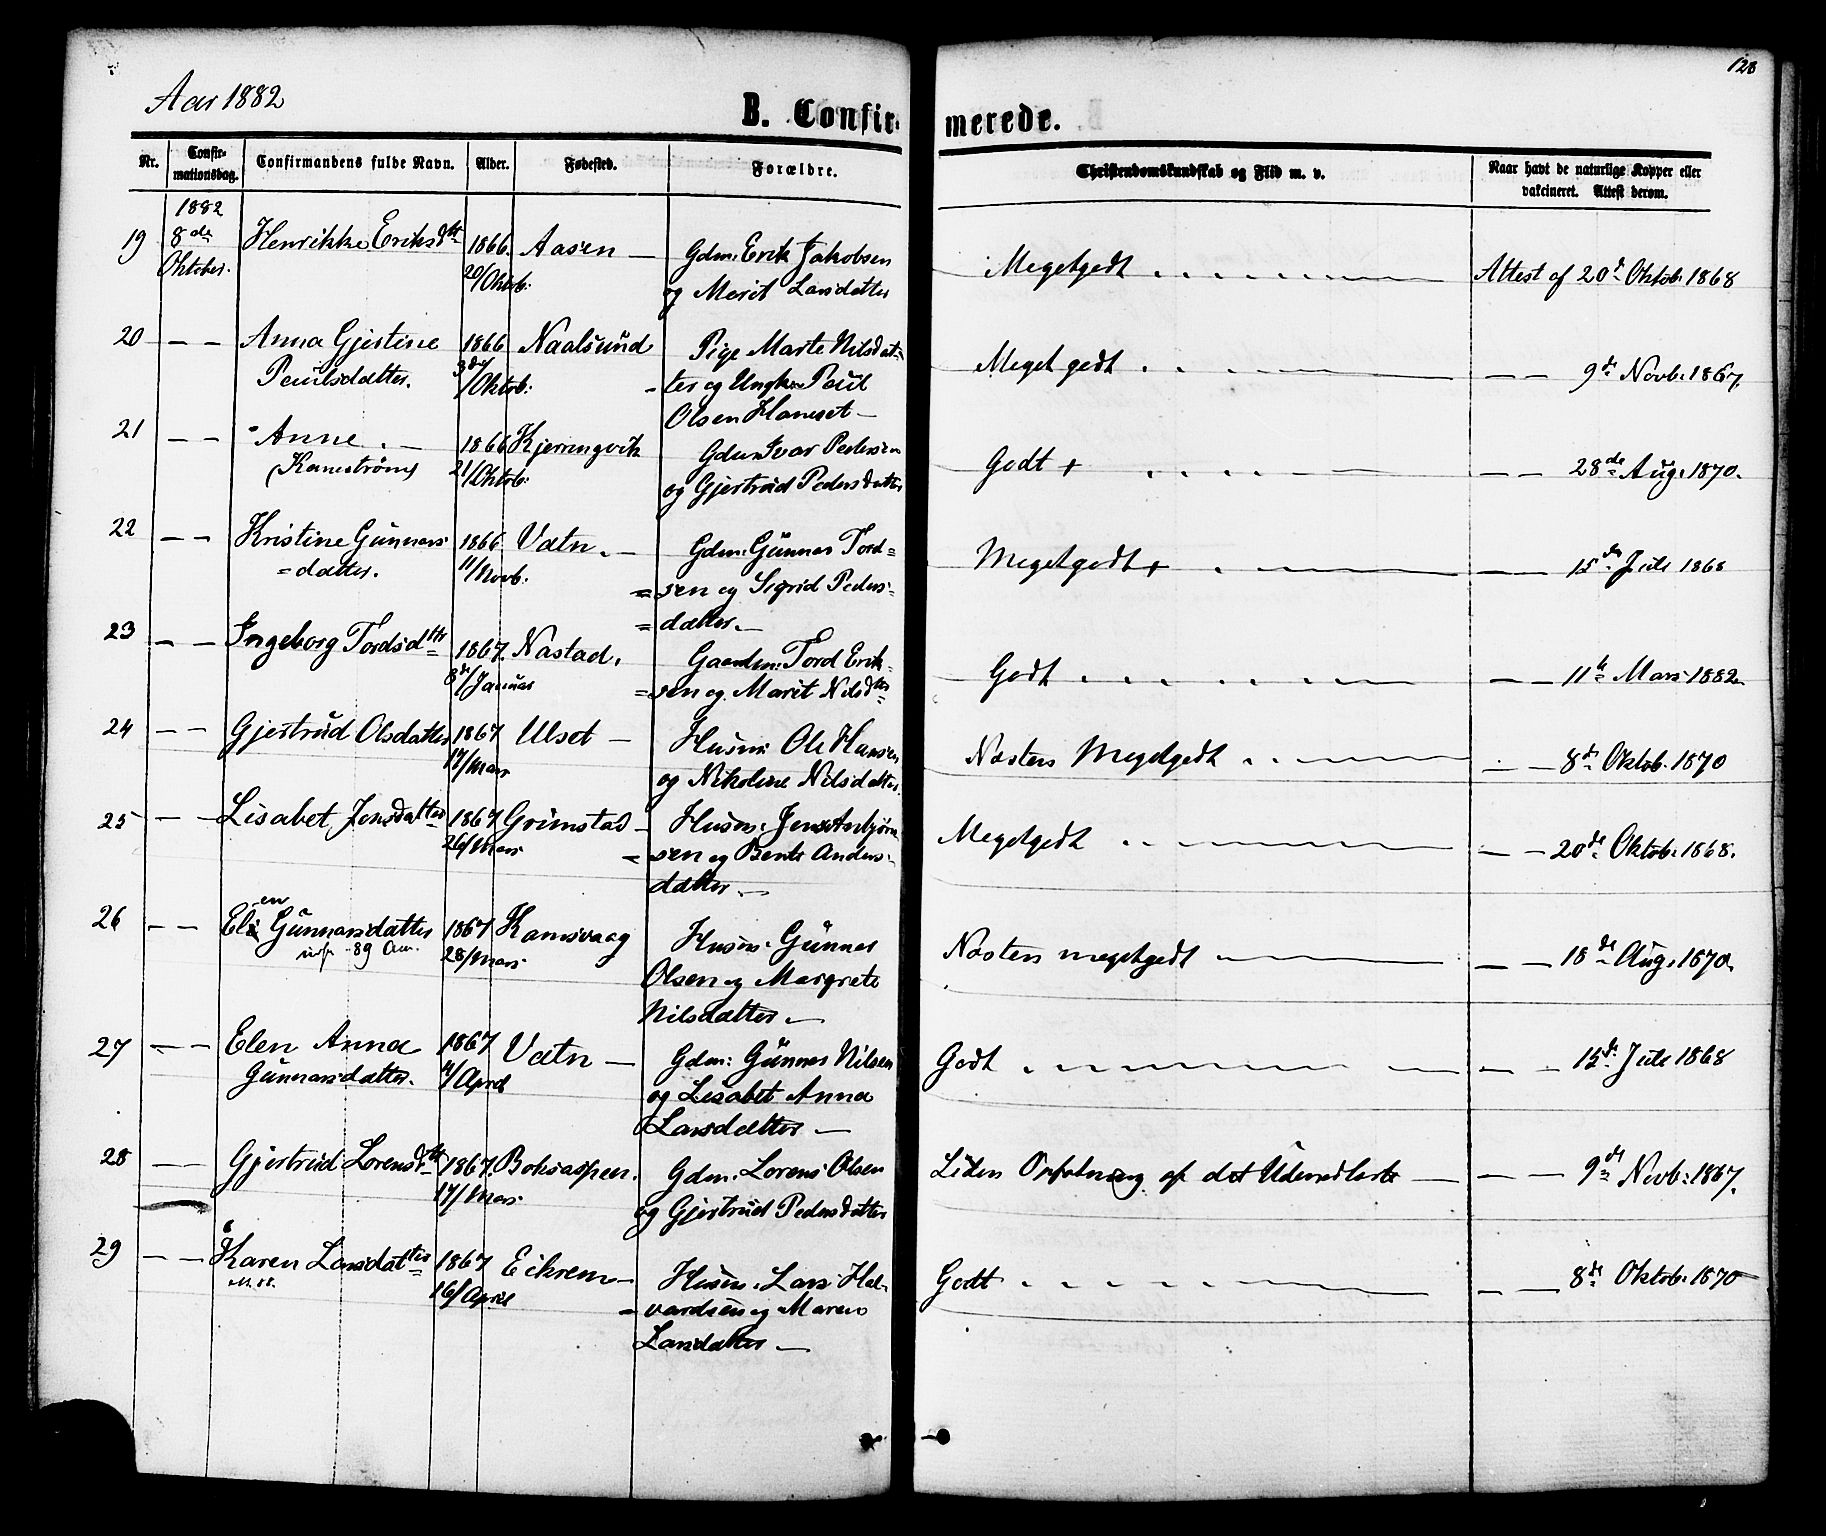 128
Aar 1882
B. Confirmerede.
Nr. Confirmationsdag. Confirmandens fulde Navn. Alder. Fødested. Forældre. Christendomskundskab og Flid m. v. Naar havt de naturlige Kopper eller vakcineret. Attest derom.
1882
19 8de Oktober. Henrikke Eriksdtt 1866. 20/Oktob: Aasen — Gdm. Erik Jakobsen
og Marit Larsdatter Megetgodt Attest af 20de Oktob. 1868
20 — — Anna Gjertine 1866 Naalsund Pige Marte Nilsdat-
Paulsdatter. 3de/Oktob: -ter og Ungk. Paul Meget godt — — 9de Novb. 1867.
Olsen Haneset —
21 — — Anne. — 1866 Kjerringvik Gdm Ivar Pedersen
Kanestrøm 21/Oktob: og Gjertrud Pedersdatter Godt + — — 28de Aug. 1870.
22 — — Kristine Gunnars 1866 Vatn. — Gdm. Gunner Tord=
=datter. 11/Novb. =sen og Sigrid Peders= Megetgodt + — — 15de Juli 1868
=datter. —
23 — — Ingeborg Tordsdtr 1867. Nastad. Gaardm: Tord Erik-
8de/Januar =sen og Marit Nilsdtr Godt — — 11te Mars 1882
24 — — Gjertrud Olsdatter 1867 Ulset — Husm: Ole Hansen
17/Mars og Nikoline Nilsdatter. Næsten Megetgodt — — 8de Oktob. 1870
25 — — Lisabet Jensdatter 1867 Grimstad — Husm. Jens Asbjørn
26/Mars =sen og Berte Anders- Megetgodt — — 20de Oktob. 1868.
datter. —
en
26 — — Eli Gunnarsdatter 1867 Kamsvaag Husm. Gunner
-89 Am. 28/Mars Olsen og Margrete Næsten megetgodt — — 18de Aug. 1870.
Nilsdatter. —
27 — — Elen Anna 1867 Vatn — Gdm: Gunner Nilsen
Gunnarsdatter. /April og Lisabet Anna Godt — — 15de Juli 1868
Larsdatter —
28 — — Gjertrud Lorensdtt 1867. Gdm. Lorens Olsen
17/Mars og Gjertrud Pedersdatter Liden Opfatning af det Udenadlærte — — — 9de Novb. 1867.
29 — — Karen Larsdatter 1867 Eikrem — Husm. Lars Hal-
M. 88. 16/April =vardsen og Maren Godt — — 8de Oktob. 1870
Larsdatter —